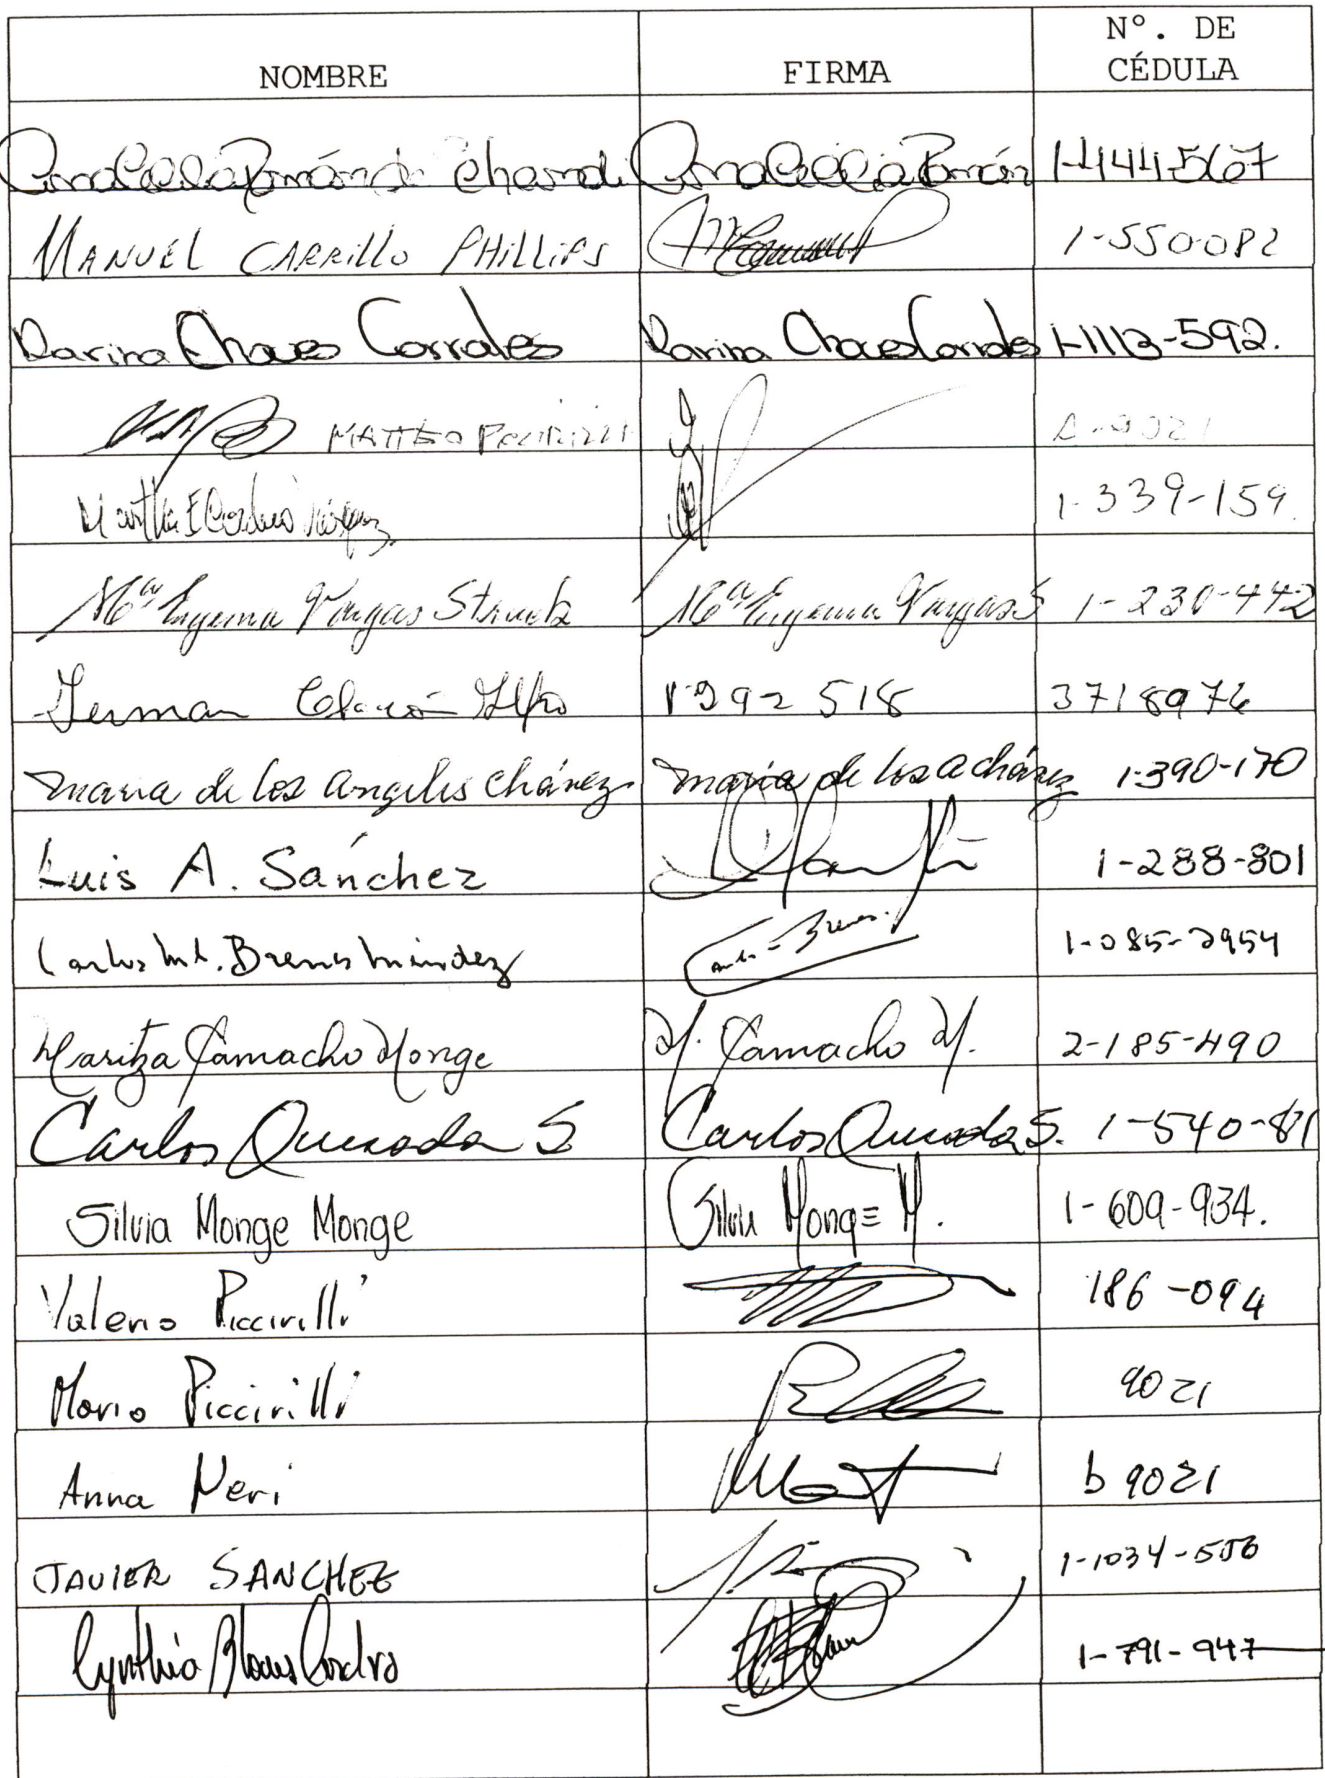 NOMBRE FIRMA Nº. DE CÉDULA
Chandi 1-444-567
MANUEL CARRILLO PHILLIPS 1-550-082
Karina Chaves Corrales Karina Chaves Corrales 1-1113-592.
MATTEO PICCIRILLI 9021
Martha E 1-339-159.
Mª Eugenia Vargas Mª Eugenia Vargas S 1-230-442
1 392 518 3718976
maria de los angeles chávez maria de los a chávez 1-390-170
Luis A. Sánchez 1-288-801
Carlos Ml. Brenes Méndez Brenes 1-085-2954
Maritza Camacho Monge M. Camacho M. 2-185-490
Carlos Quesada S. Carlos Quesada S. 1-540-81
Silvia Monge Monge Silvia Monge M. 1-609-934.
Valerio Piccirilli 186-094
Mario Piccirilli 9021
Anna Neri b 9021
JAVIER SANCHEZ 1-1034-556
Cynthia 1-791-947